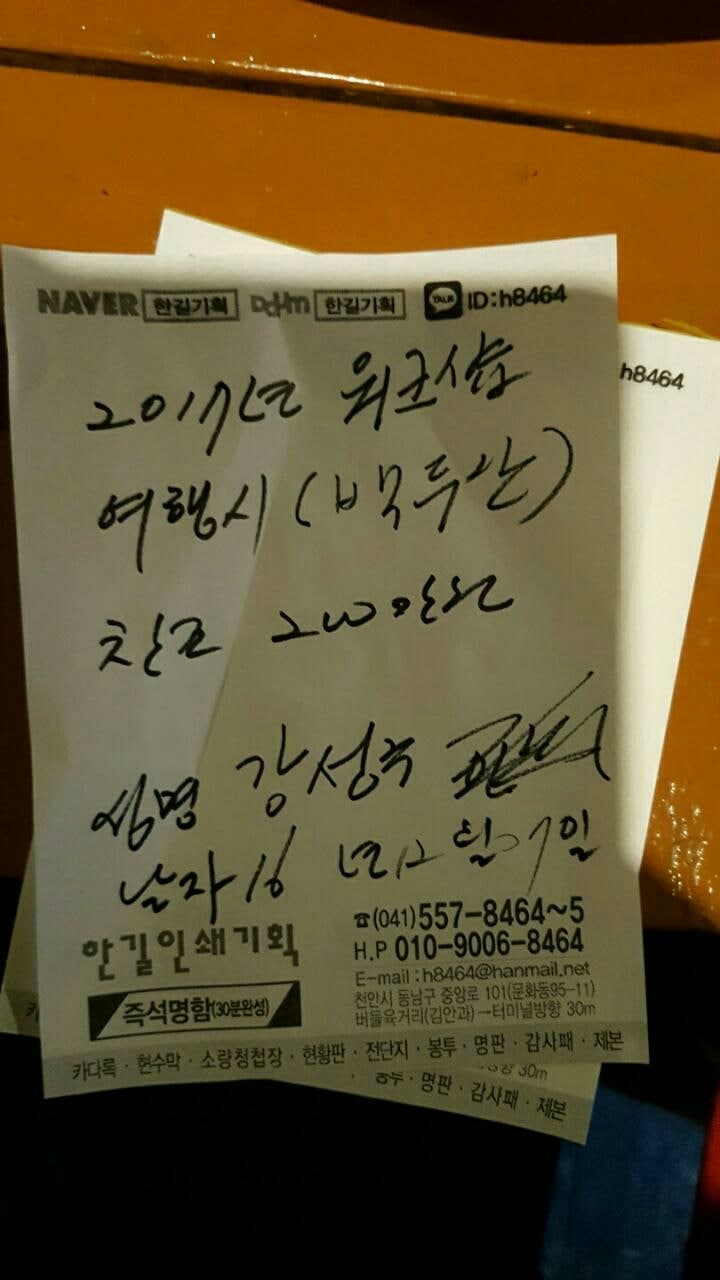 NAVER 한길기획 Daum 한길기획 TALK ID:h8464
h8464
2017년 워크샵
여행시 (백두산)
찬조 200만원
성명 강성국
날자 16년 12월 07일
한길인쇄기획
즉석명함(30분완성)
☎(041)557-8464~5
H.P 010-9006-8464
E-mail : h8464@hanmail.net
천안시 동남구 중앙로 101(문화동95-11)
버들육거리(김안과)→터미널방향 30m
카다록 · 현수막 · 소량청첩장 · 현황판 · 전단지 · 봉투 · 명판 · 감사패 · 제본
30m
봉투 · 명판 · 감사패 · 제본